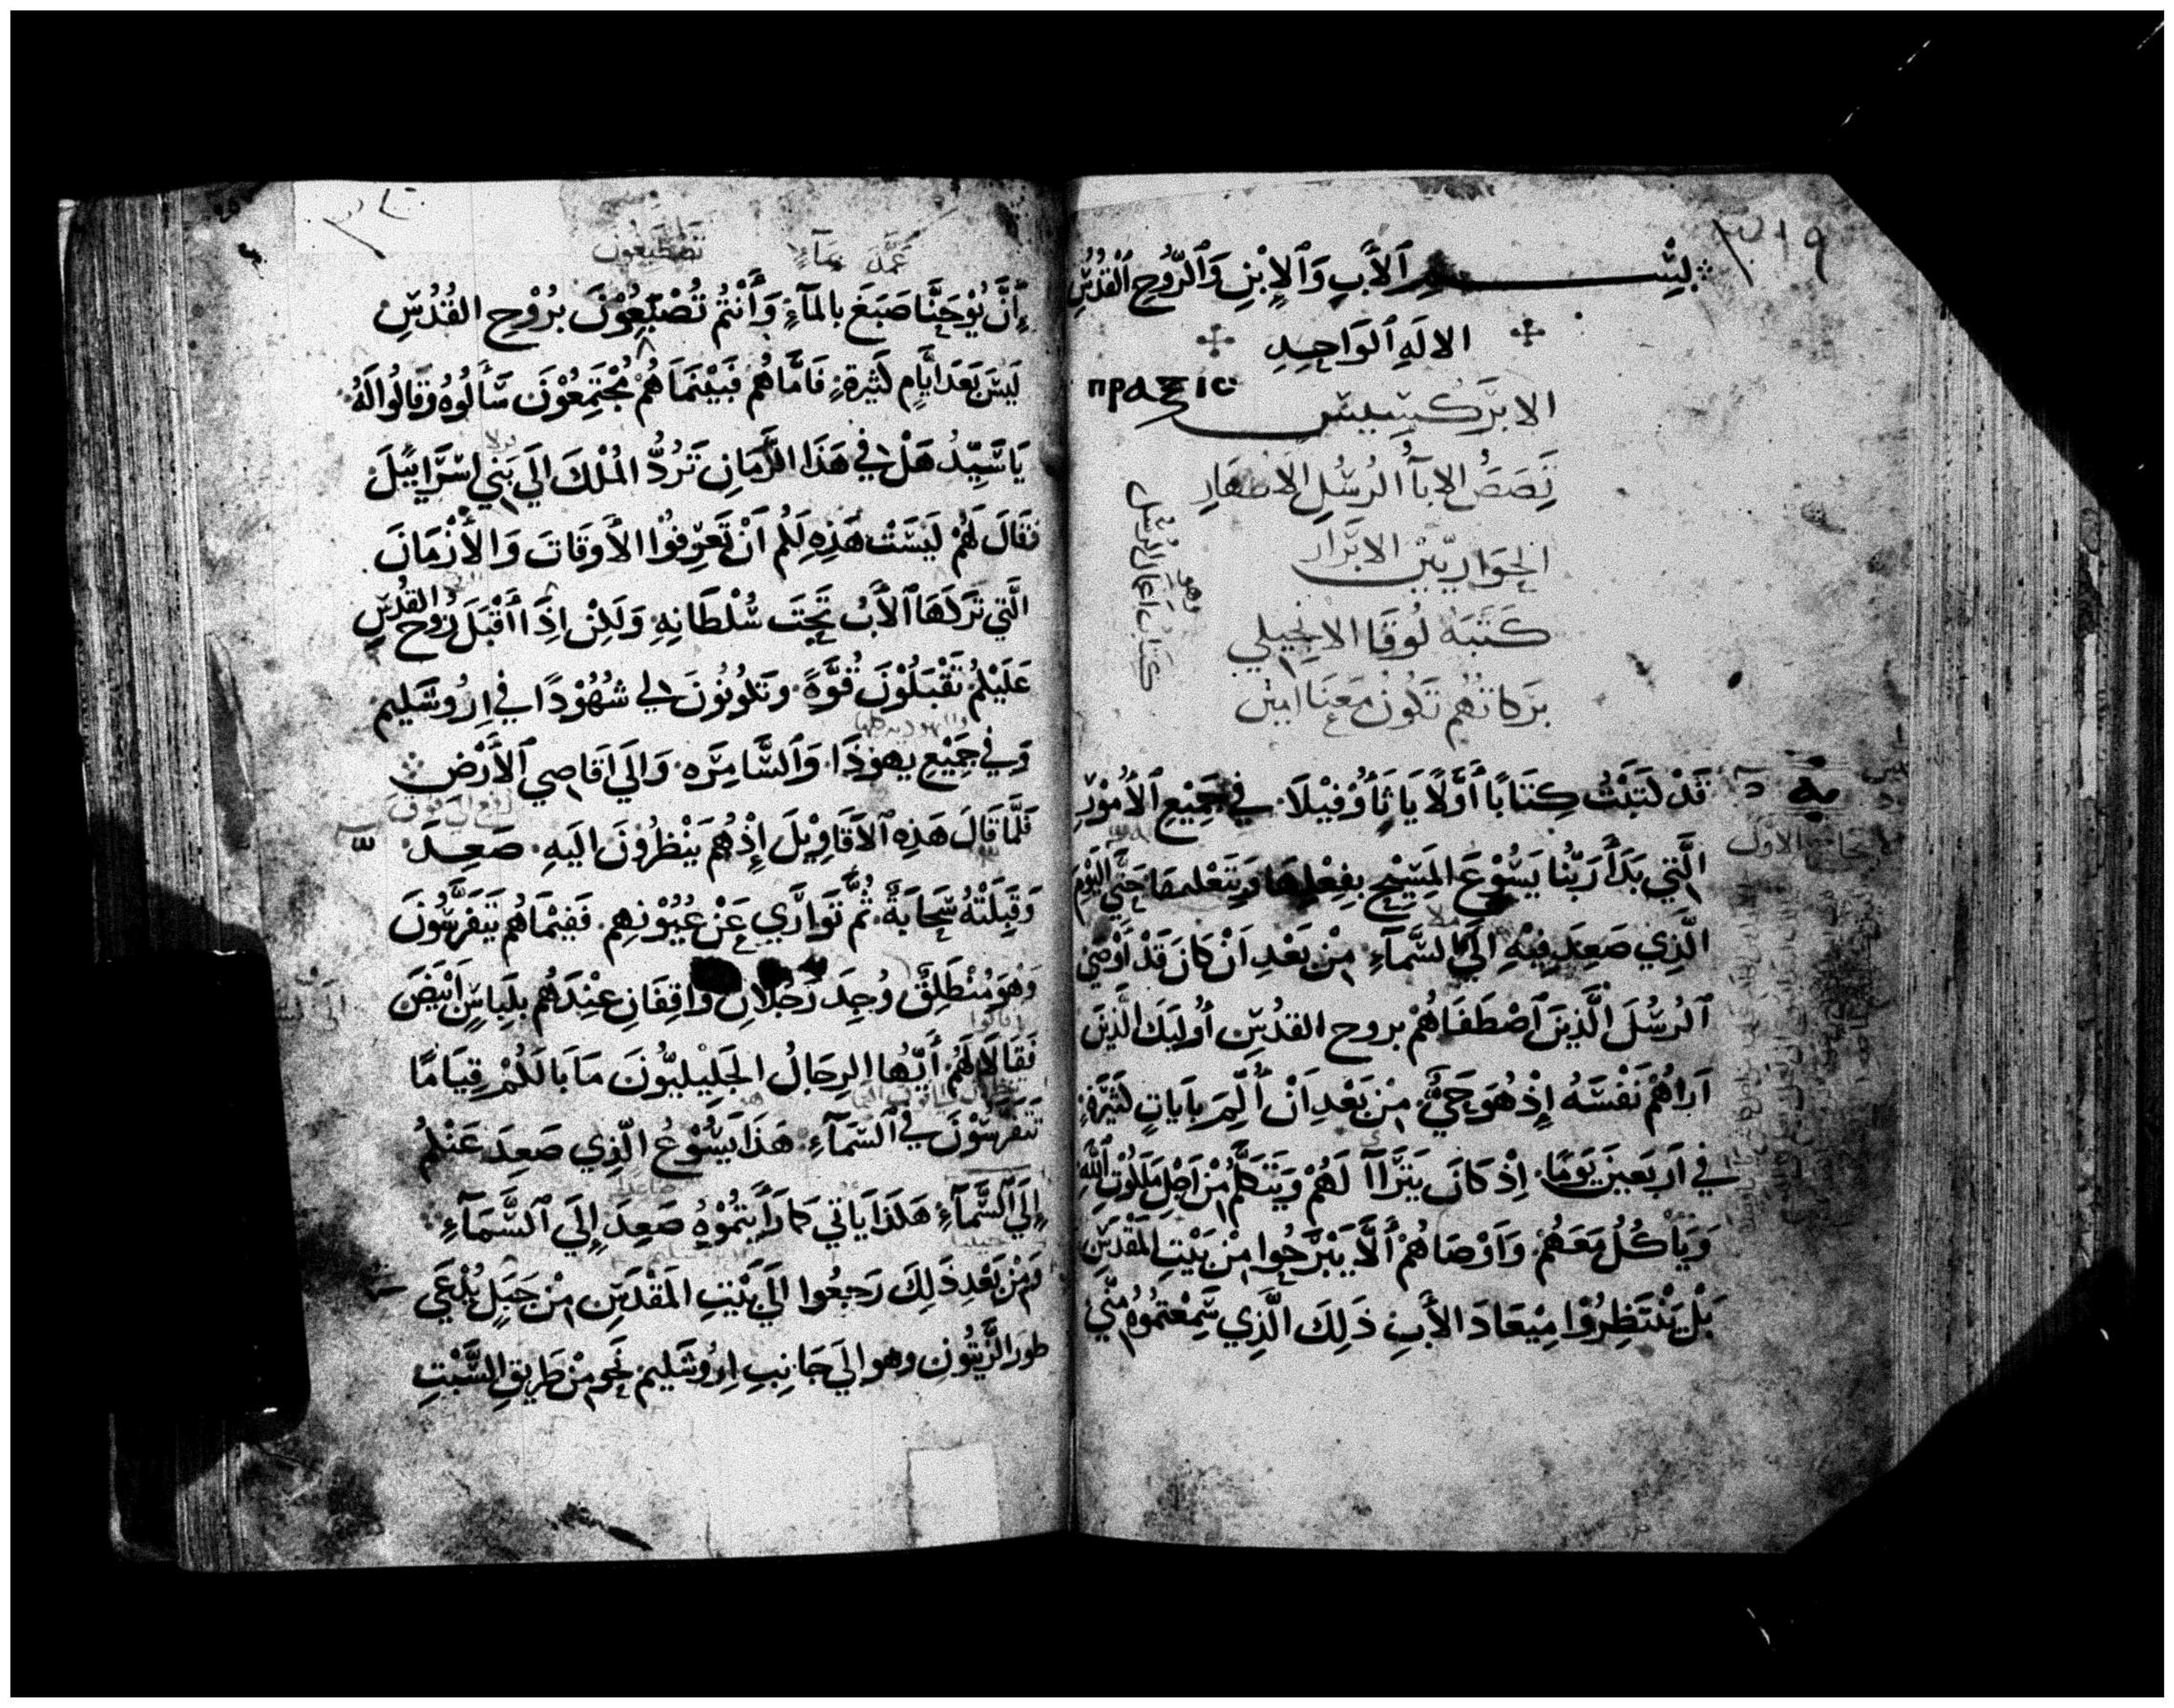 بِسْمِ ٱلْأَبِ وَٱلْإِبْنِ وَٱلرُّوحِ ٱلْقُدُسِ
الالَهِ ٱلوَاحِدِ
πραξις
الابرَكسيسِ
قَصَصُ الابآءُ الرسُلِ الاطهَارِ
الحَوَارِيّين الابرَار
كَتَبَهُ لُوقَا الانجيلي
بَرَكاتهُم تَكُونُ مَعَنَا امين
وهو كتاب اعمال الرسُل
قَدْ كَتَبْتُ كِتَابًا أَوَّلًا يَا ثَاؤُفِيْلَا فِي جَمِيْعِ ٱلْأُمُوْرِ
الَّتِي بَدَأَ رَبُّنَا يَسُوْعَ المَسِيْحِ بِفِعْلِهَا وَبِتَعْليمها حَتَّي اليَوْم
الَّذِي صَعِدَ فِيْهِ اِلَي السَّمَآءِ مِنْ بَعْدِ اَنْ كَانَ قَدْ أَوْصَي
ٱلرُسُلَ الَّذِينَ ٱصْطَفَاهُمْ بروح القدُسِ أُولَيكَ الَّذِينَ
اَرَاهُمْ نَفْسَهُ إِذْ هُوَ حَيٌّ مِنْ بَعْدِ اَنْ أَلِمَ بِاَيَاتٍ كَثِيرَةٍ
فِي اَرْبَعِينَ يَوْمًا اِذْ كَانَ يَتَرَاآ لَهُمْ وَيَتَكَلَّمُ مِنْ اَجْلِ مَلَكُوْتِ ٱللَّهِ
وَيَاكُلُ مَعَهُمْ وَاَوْصَاهُمْ أَلَّا يَبْرَحُوا مِنْ بَيْتِ المَقْدَسِ
بَلْ يَنْتَظِرُوْا مِيْعَادَ الأَبِ ذَلِكَ الَّذِي سَمِعْتمُوهُ مِنِّي
عَمَّدَ بِمَآءٍ تَصْطَبِغُونَ
إِنَّ يُوْحَنَّا صَبَغَ بالمَآءِ وَأَنْتُمْ تُصْبَغُوْنَ بِرُوْحِ القُدُسِ
لَيْسَ بَعْدَ اَيَّامٍ كَثِيرةٍ فَامَّا هُمْ فَبَيْنَمَا هُمْ مُجْتَمِعُوْنَ سَأَلُوهُ وَقَالُوا لَهُ
يَا سَيِّدُ هَلْ فِي هَذَا الزَّمَانِ تَرُدُّ المُلْكَ اِلَي بَنِي اِسْرَاييلَ
فَقَالَ لَهُمْ لَيْسَتْ هَذِهِ لَكُم اَنْ تَعْرِفُوْا الأَوقَاتَ وَالأَزْمَانَ
الَّتِي تَرَكَهَا ٱلأَبُ تَحْتَ سُلْطَانِهِ وَلَكِنْ اِذَا أَقْبَلَ رُوح القُدُسِ
عَلَيْكُم تَقْبَلُوْنَ قُوَّةً وَتَكُونُونَ لِي شُهُوْدًا فِي اِرُوسَلِيم
وَفِي جَمِيْعِ يهوُذَا وَٱلسَّامِرَه وَاِلَي اَقَاصِي ٱلأَرْضِ
فَلَمَّا قَالَ هَذِهِ ٱلاَقَاوِيْلَ إِذْ هُم يَنْظُرُونَ اِلَيهِ صَعِدَ
وَقَبِلَتْهُ سَحَابَةٌ ثُمَّ تَوَارَي عَنْ عُيُوْنِهِم فَفِيْمَا هُم يَتَفَرَّسُونَ
وَهُوَ مُنْطَلِقٌ وُجِدَ رَجُلَانِ وَاقِفَانِ عِنْدَهُم بِلِبَاسٍ اَبْيَضَ
فَقَالَا لَهُمْ أَيُّهَا الرِجَالُ الجَلِيلِيُّونَ مَا بَالَكُمْ قِيَامًا
تَتَفَرَّسُوْنَ فِي السَّمَآءِ هَذَا يَسُوْعُ الَّذِي صَعِدَ عَنْكُمْ
إِلَي ٱلسَّمَآءِ هَكَذَا يَاتي كَمَا رَأَيْتُمُوْهُ صَعِدَ إِلَي ٱلسَّمَآءِ
وَمِنْ بَعْدِ ذَلِكَ رَجَعُوا اِلَي بَيْتِ المَقْدَسِ مِنْ جَبَلٍ يُدْعَي
طور الزَّيْتُونِ وهو الي جَانِبِ اِرُوسَليم نَحوٍ مِنْ طَرِيقِ السَّبْتِ